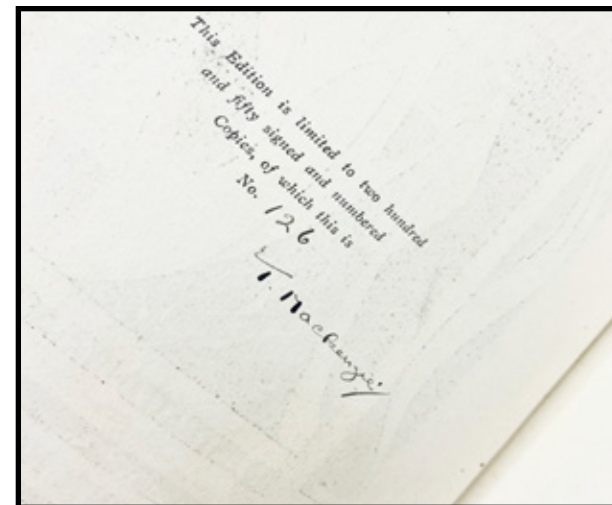 This Edition is limited to two hundred
and fifty signed and numbered
Copies, of which this is
No. 126
T. Mackenzie.